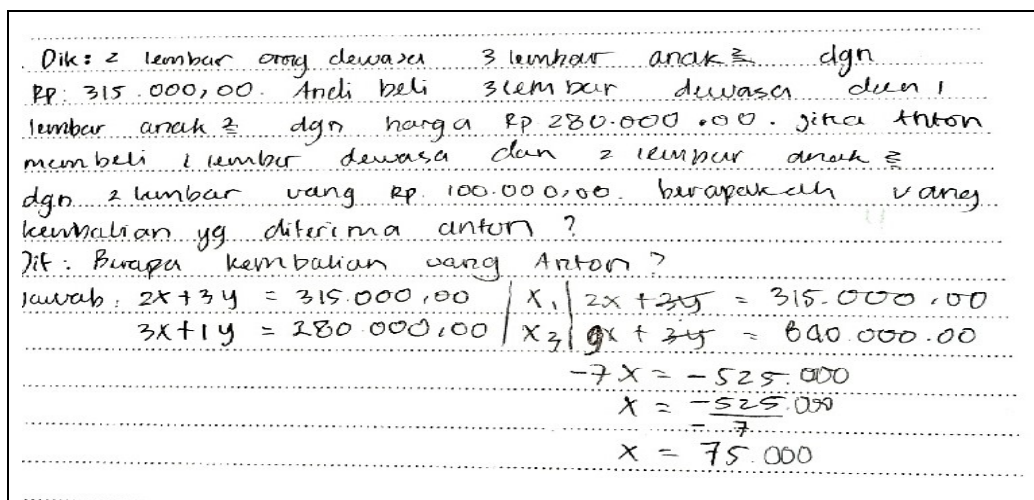 Dik: 2 lembar orang dewasa 3 lembar anak2 dgn
Rp. 315.000,00. Andi beli 3 lembar dewasa dan 1
lembar anak2 dgn harga Rp 280.000.00. jika Anton
membeli 1 lembar dewasa dan 2 lembar anak2
dgn 2 lembar uang Rp. 100.000,00. berapakah uang
kembalian yg diterima anton ?
Dit : Berapa kembalian uang Anton ?
Jawab : 2x + 3y = 315.000,00 | x1 | 2x + 3y = 315.000,00
3x + 1y = 280.000,00 | x3 | 9x + 3y = 840.000.00
-7x = -525.000
x = -525.000
-7
x = 75.000